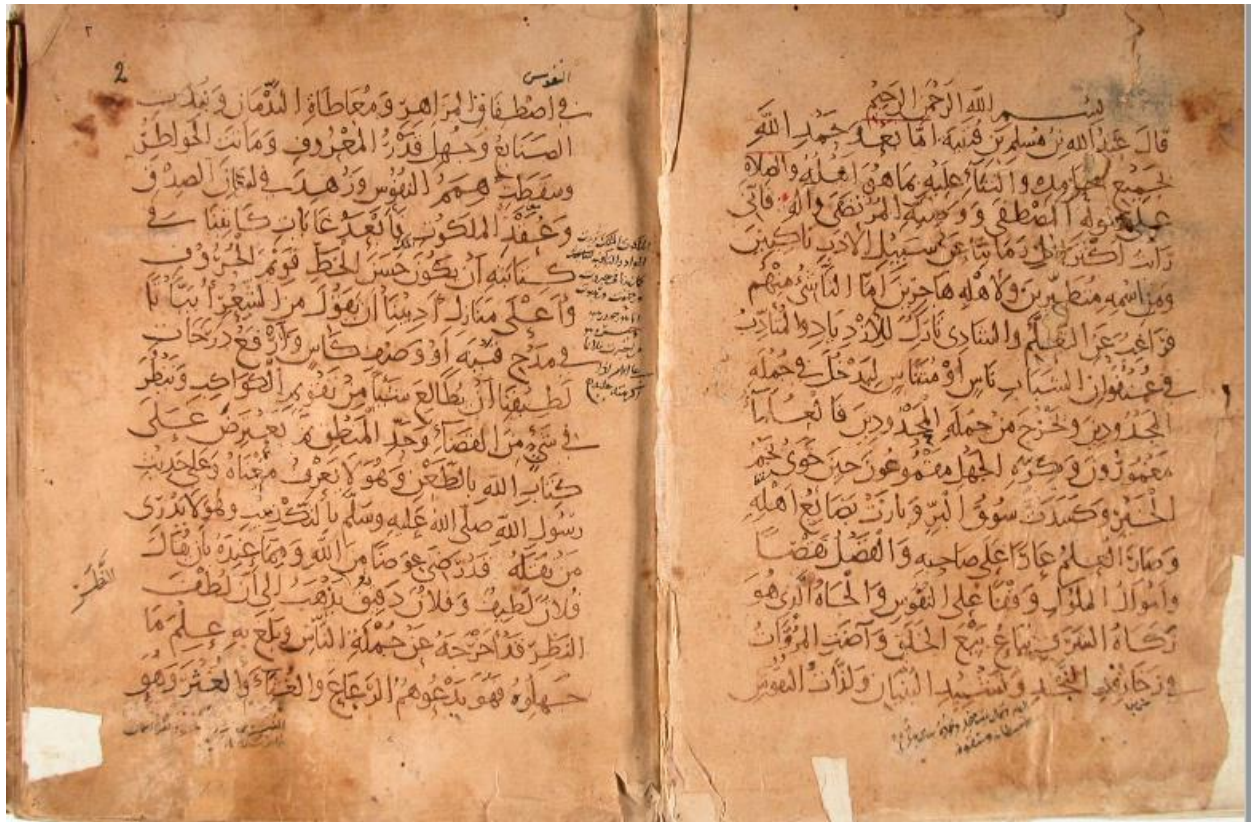 بسم الله الرحمن الرحيم
قال عبد الله بن مسلم بن قتيبة اما بعد حمد الله
بجميع محامده والثناء عليه بما هو اهله والصلاة
على رسوله المصطفى ووصيه المرتضى وآله فاني
رأيت اكثر اهل زماننا عن سبيل الأدب ناكبين
ومن اسمه متطيرين ولأهله هاجرين اما الناشئ منهم
فراغب عن التعلم والشادي تارك للازدياد والمتأدب
في عنفوان الشباب ناس أو متناس ليدخل في جملة
المجدودين ويخرج من جملة المحدودين فالعلماء
مغمورون وبكرة الجهل مقموعون حين خوى نجم
الخير وكسدت سوق البر وبارت بضائع اهله
وصار العلم عارا على صاحبه والفضل نقصا
واموال الملوك وقفا على النفوس والجاه الذي هو
زكاة الشرف يباع بيع الخلق وآضت المروآت
في زخارف النجد وتشييد البنيان ولذات النفوس
النفوس
في اصطفاق المزاهر ومعاطاة الندمان ونبذت
الصنائع وجهل قدر المعروف وماتت الخواطر
وسقطت همم النفوس وزهد في لسان الصدق
وعقد الملكوت فأبعد غايات كاتبنا في
كتابته أن يكون حسن الخط قويم الحروف
وأعلى منازل أديبنا أن يقول من الشعر أبياتا
في مدح قينة أو وصف كاس وأرفع درجات
لطيفنا أن يطالع شيئا من تقويم الكواكب وينظر
في شيء من القضاء وحد المنطق ثم يعترض على
كتاب الله بالطعن وهو لا يعرف معناه وعلى حديث
رسول الله صلى الله عليه وسلم بالتكذيب وهو لا يدرى
من نقله قد رضى عوضا من الله ومما عنده بأن يقال
فلان لطيف وفلان دقيق يذهب الى أن لطف
النظر
النظر قد أخرجه عن جملة الناس وبلغ به علم ما
جهلوه فهو يدعوهم الرعاع والغثاء والغثر وهو
2
٢